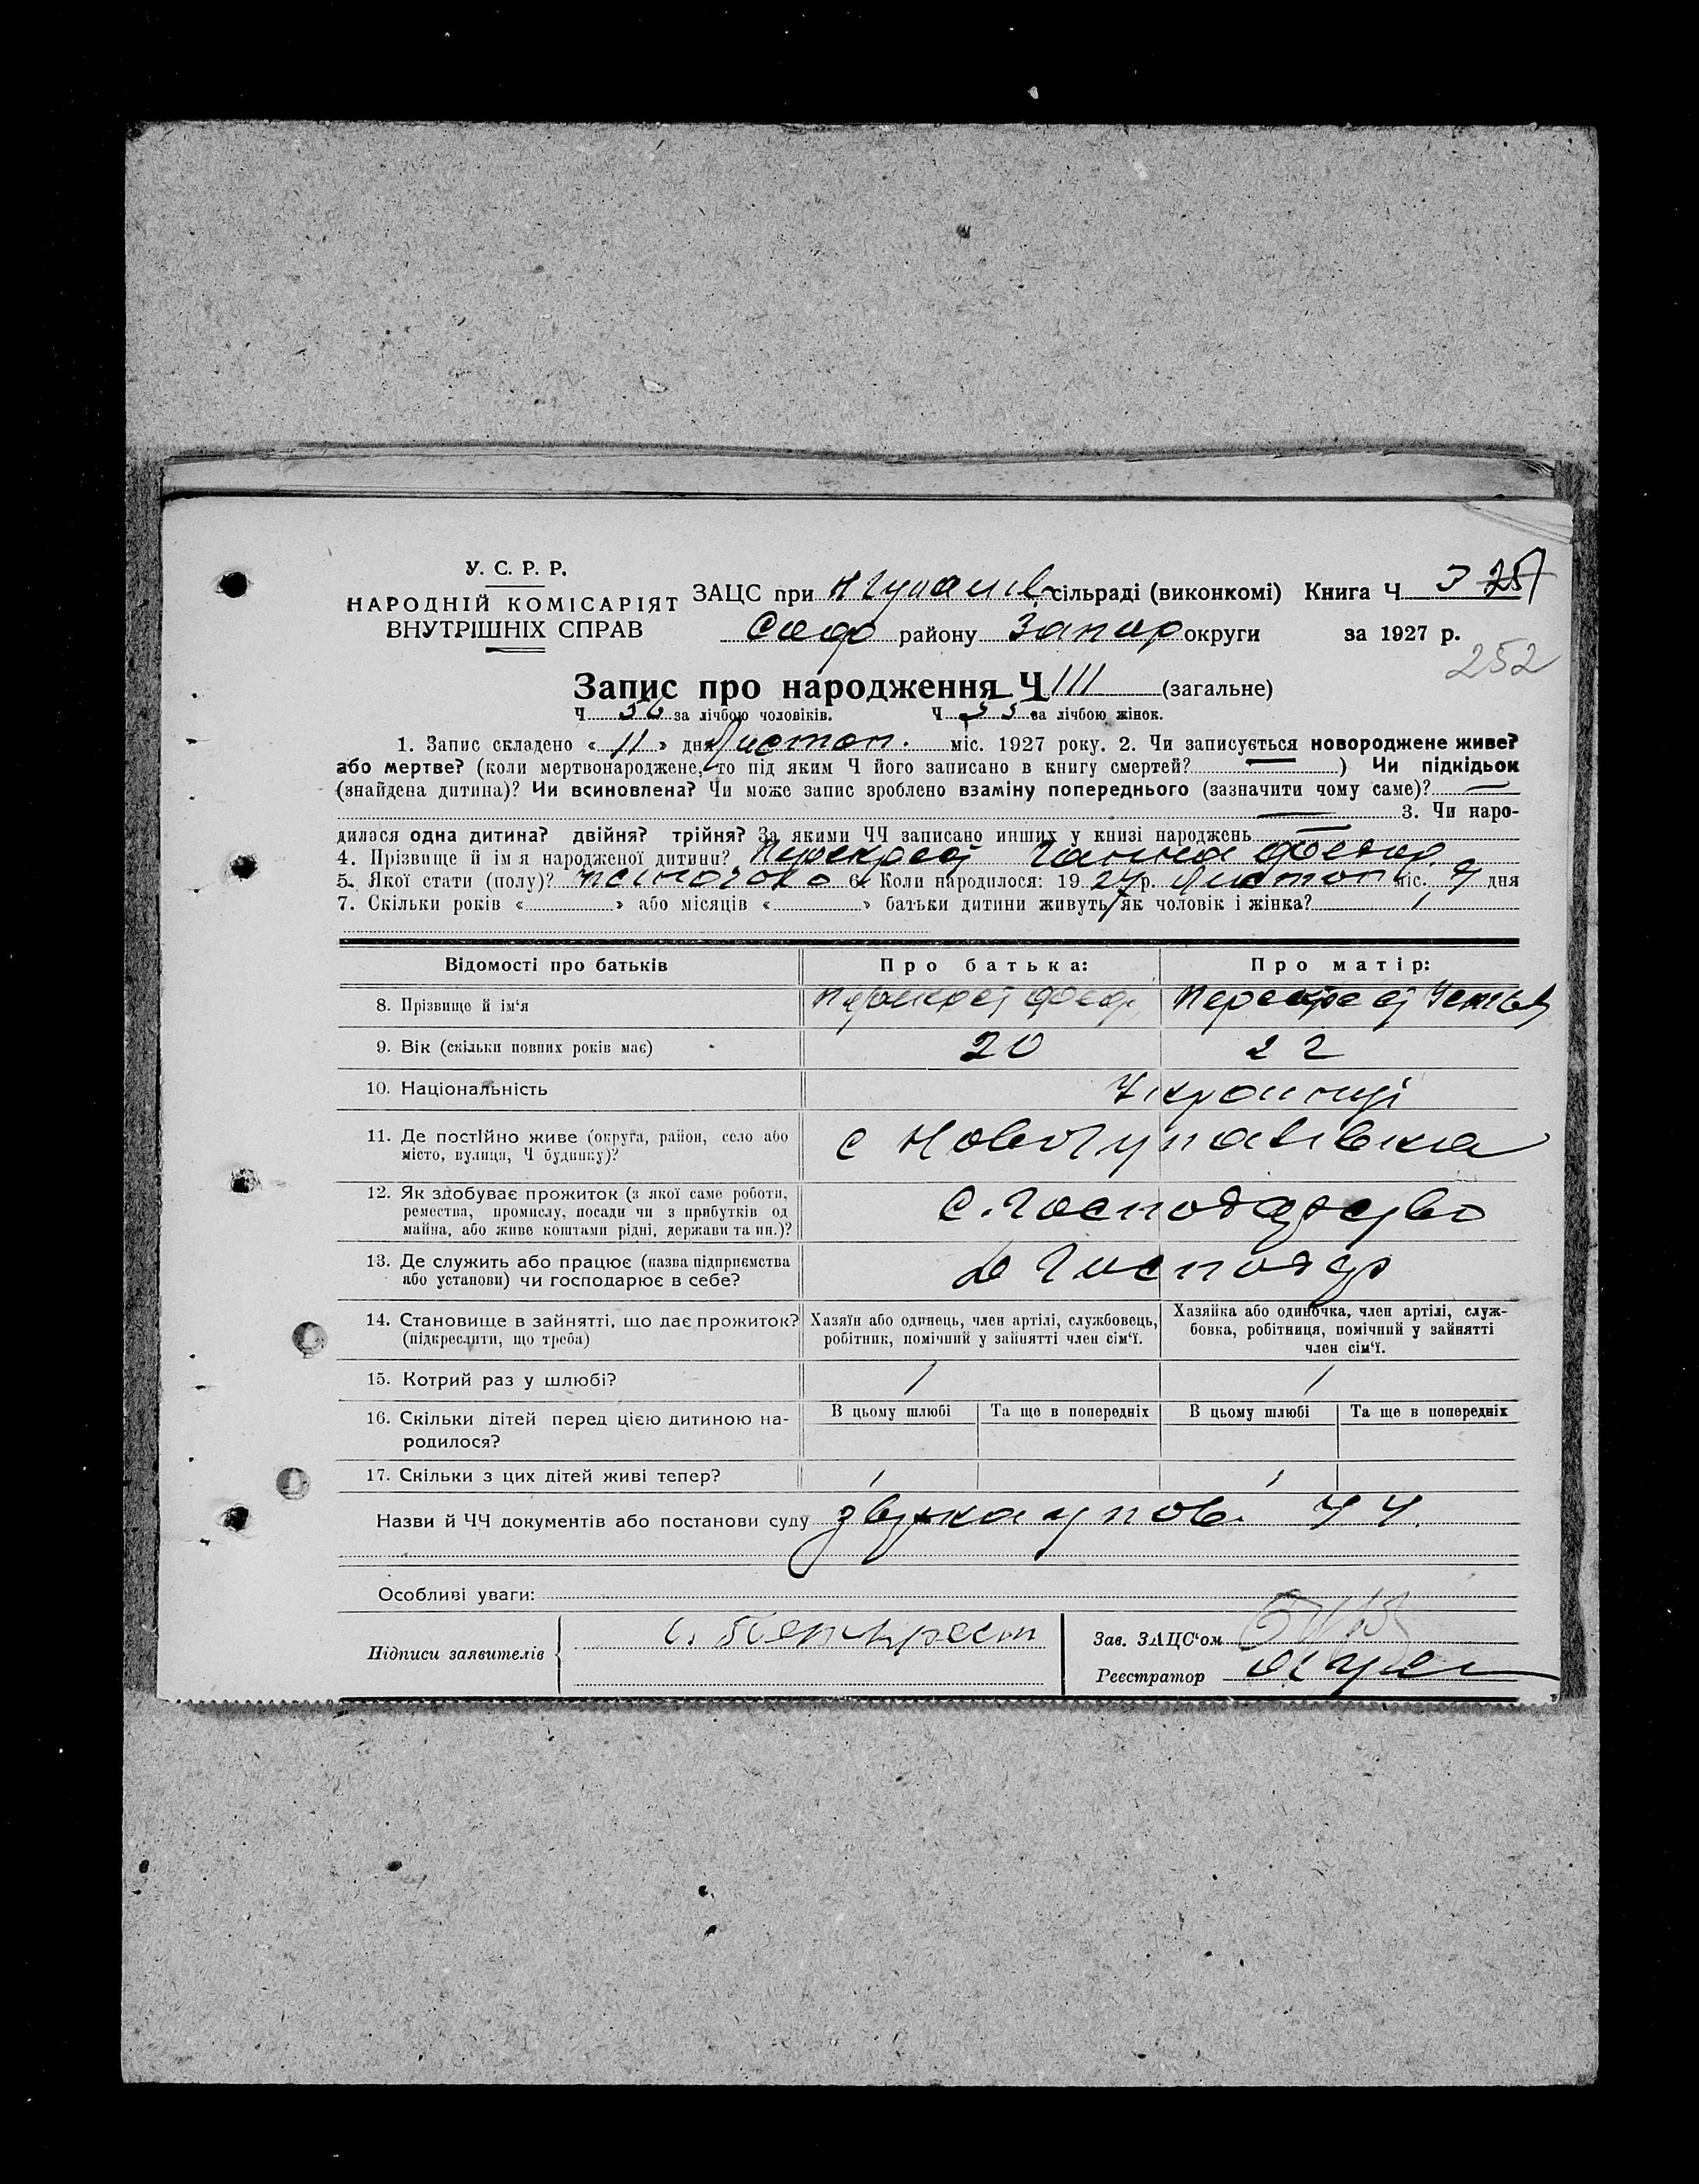 У. С. Р. Р.
НАРОДНІЙ КОМІСАРІЯТ
ВНУТРІШНІХ СПРАВ
ЗАЦС при сільраді (виконкомі) Книга Ч 3 251
Соф району Запор округи за 1927 р.
252
Запис про народження Ч 111 (загальне)
Ч 56 за лічбою чоловіків. Ч 55 за лічбою жінок.
1. Запис складено « 11 » дня Листоп. міс. 1927 року. 2. Чи записується новороджене живе?
або мертве? (коли мертвонароджене, то під яким Ч його записано в книгу смертей? — ) Чи підкідьок
(знайдена дитина)? Чи всиновлена? Чи може запис зроблено взаміну попереднього (зазначити чому саме)? —
— 3. Чи наро-
дилася одна дитина? двійня? трійня? За якими ЧЧ записано инших у книзі народжень —
4. Прізвище й ім'я народженої дитини? Перекрест Ганна Федор.
5. Якої стати (полу)? жіночого 6. Коли народилося: 1927 р. Листоп міс. 9 дня
7. Скільки років « » або місяців « » батьки дитини живуть як чоловік і жінка? 1
Відомості про батьків Про батька: Про матір:
8. Прізвище й ім'я Перекрест Федр Перекрест Устья
9. Вік (скільки повних років має) 20 22
10. Національність Українці
11. Де постійно живе (округа, район, село або
місто, вулиця, Ч будинку)?
с Новогупалівка
12. Як здобуває прожиток (з якої саме роботи,
ремества, промислу, посади чи з прибутків од
майна, або живе коштами рідні, держави та ин.)?
С. Господарство
13. Де служить або працює (назва підприємства
або установи) чи господарює в себе?
Господар
14. Становище в зайнятті, що дає прожиток?
(підкреслити, що треба)
Хазяїн або одинець, член артілі, службовець,
робітник, помічний у зайнятті член сім'ї.
Хазяйка або одиночка, член артілі, служ-
бовка, робітниця, помічний у зайнятті
член сім'ї.
15. Котрий раз у шлюбі? 1 1
16. Скільки дітей перед цією дитиною на-
родилося?
В цьому шлюбі Та ще в попередніх В цьому шлюбі Та ще в попередніх
17. Скільки з цих дітей живі тепер? 1 1
Назви й ЧЧ документів або постанови суду
Особливі уваги:
Підписи заявителів
Зав. ЗАЦС'ом
Реєстратор